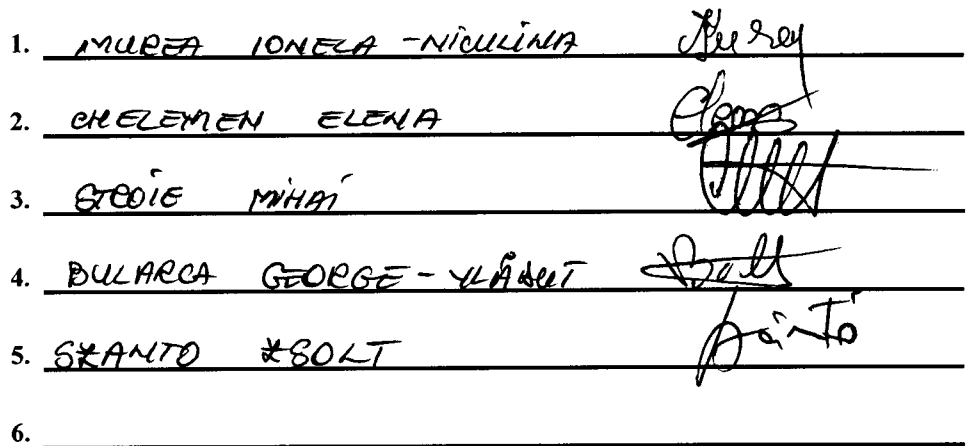 1. MUREA IONELA-NICULINA Murea
2. CHELEMEN ELENA Elena
3. STROIE MIHAI
4. BULARCA GEORGE-VLĂDUȚ
5. SZANTO ZSOLT Szántó
6.